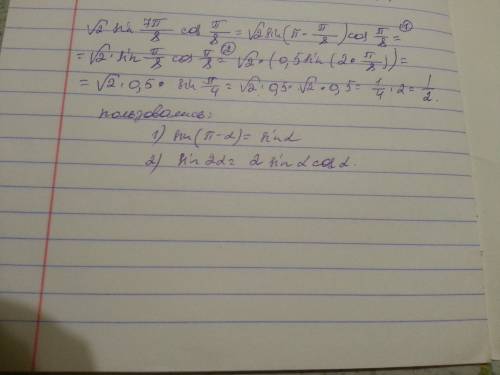 √2 sin 7π/8 cos π/8 = √2 sin(π - π/8) cos π/8 = ①
= √2 · sin π/8 cos π/8 = ② √2 · (0,5 sin(2 · π/8)) =
= √2 · 0,5 · sin π/4 = √2 · 0,5 · √2 · 0,5 = 1/4 · 2 = 1/2.
пользовались:
1) sin(π-α) = sinα
2) sin2α = 2 sinα cosα.